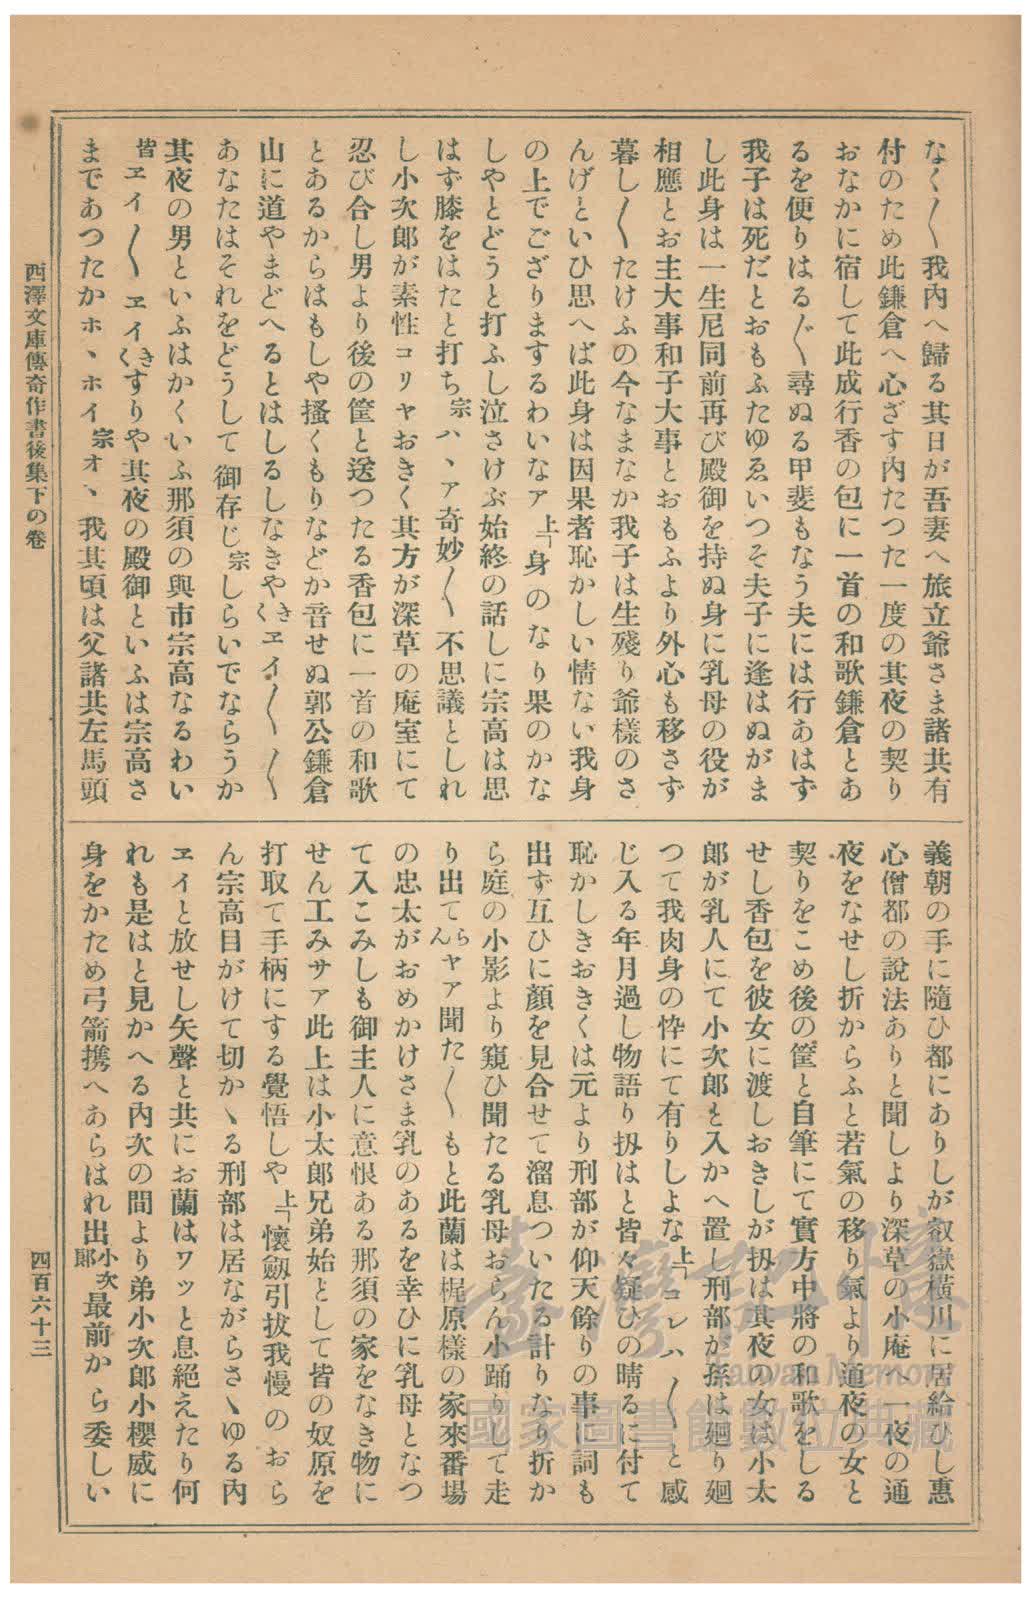 なく〳〵我内へ歸る其日が吾妻へ旅立爺さま諸共有
付のため此鎌倉へ心ざす内たつた一度の其夜の契り
おなかに宿して此成行香の包に一首の和歌鎌倉とあ
るを便りはる〴〵尋ぬる甲斐もなう夫には行あはず
我子は死だとおもふたゆゑいつそ夫子に逢はぬがま
し此身は一生尼同前再び殿御を持ぬ身に乳母の役が
相應とお主大事和子大事とおもふより外心も移さず
暮し〳〵たけふの今なまなか我子は生殘り爺樣のさ
んげといひ思へば此身は因果者恥かしい情ない我身
の上でござりまするわいなア 上「身のなり果のかな
しやとどうと打ふし泣さけぶ始終の話しに宗高は思
はず膝をはたと打ち 宗 ハヽア奇妙〳〵不思議としれ
し小次郎が素性コリヤおきく其方が深草の庵室にて
忍び合し男より後の筐と送つたる香包に一首の和歌
とあるからはもしや搔くもりなどか音せぬ郭公鎌倉
山に道やまどへるとはしるしなきや きく ヱイ〳〵〳〵
あなたはそれをどうして御存じ 宗 しらいでならうか
其夜の男といふはかくいふ那須の與市宗高なるわい
皆 ヱイ〳〵ヱイ きく すりや其夜の殿御といふは宗高さ
まであつたかホヽホイ 宗 オヽ我其頃は父諸共左馬頭
義朝の手に隨ひ都にありしが叡嶽横川に居給ひし惠
心僧都の說法ありと聞しより深草の小庵へ一夜の通
夜をなせし折からふと若氣の移り氣より通夜の女と
契りをこめ後の筐と自筆にて實方中將の和歌をしる
せし香包を彼女に渡しおきしが扨は其夜の女は小太
郎が乳人にて小次郎と入かへ置し刑部が孫は廻り廻
つて我肉身の忰にて有りしよな 上「コレハ〳〵と感
じ入る年月過し物語り扨はと皆々疑ひの晴るに付て
恥かしきおきくは元より刑部が仰天餘りの事に詞も
出ず互ひに顏を見合せて溜息ついたる計りなり折か
ら庭の小影より窺ひ聞たる乳母おらん小踊りして走
り出て らん ヤア聞た〳〵もと此蘭は梶原樣の家來番場
の忠太がおめかけさま乳のあるを幸ひに乳母となつ
て入こみしも御主人に意恨ある那須の家をなき物に
せん工みサア此上は小太郎兄弟始として皆の奴原を
打取て手柄にする覺悟しや 上「懷劒引拔我慢のおら
ん宗高目がけて切かヽる刑部は居ながらさヽゆる內
ヱイと放せし矢聲と共にお蘭はワッと息絕えたり何
れも是はと見かへる內次の間より弟小次郎小櫻威に
身をかため弓箭携へあらはれ出 小次郎 最前から委しい
西澤文庫傳奇作書後集下の卷
四百六十三
臺灣記憶
Taiwan Memory
國家圖書館數位典藏